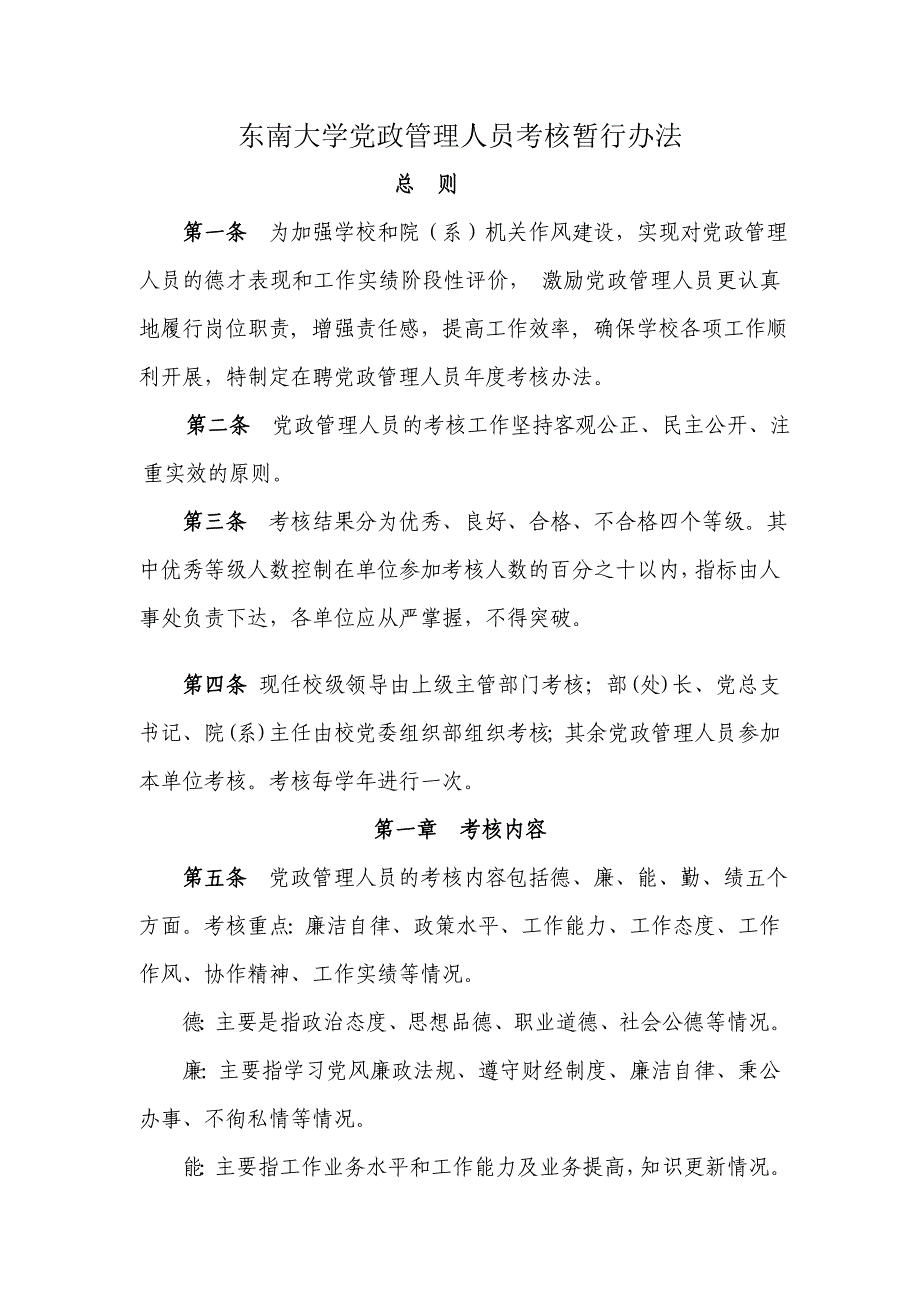 东南大学党政管理人员考核暂行办法
总　则
第一条　为加强学校和院（系）机关作风建设，实现对党政管理
人员的德才表现和工作实绩阶段性评价， 激励党政管理人员更认真
地履行岗位职责，增强责任感，提高工作效率，确保学校各项工作顺
利开展，特制定在聘党政管理人员年度考核办法。
第二条　党政管理人员的考核工作坚持客观公正、民主公开、注
重实效的原则。
第三条　考核结果分为优秀、良好、合格、不合格四个等级。其
中优秀等级人数控制在单位参加考核人数的百分之十以内，指标由人
事处负责下达，各单位应从严掌握，不得突破。
第四条 现任校级领导由上级主管部门考核；部(处)长、党总支
书记、院(系)主任由校党委组织部组织考核；其余党政管理人员参加
本单位考核。考核每学年进行一次。
第一章　考核内容
第五条　党政管理人员的考核内容包括德、廉、能、勤、绩五个
方面。考核重点：廉洁自律、政策水平、工作能力、工作态度、工作
作风、协作精神、工作实绩等情况。
德：主要是指政治态度、思想品德、职业道德、社会公德等情况。
廉：主要指学习党风廉政法规、遵守财经制度、廉洁自律、秉公
办事、不徇私情等情况。
能：主要指工作业务水平和工作能力及业务提高，知识更新情况。